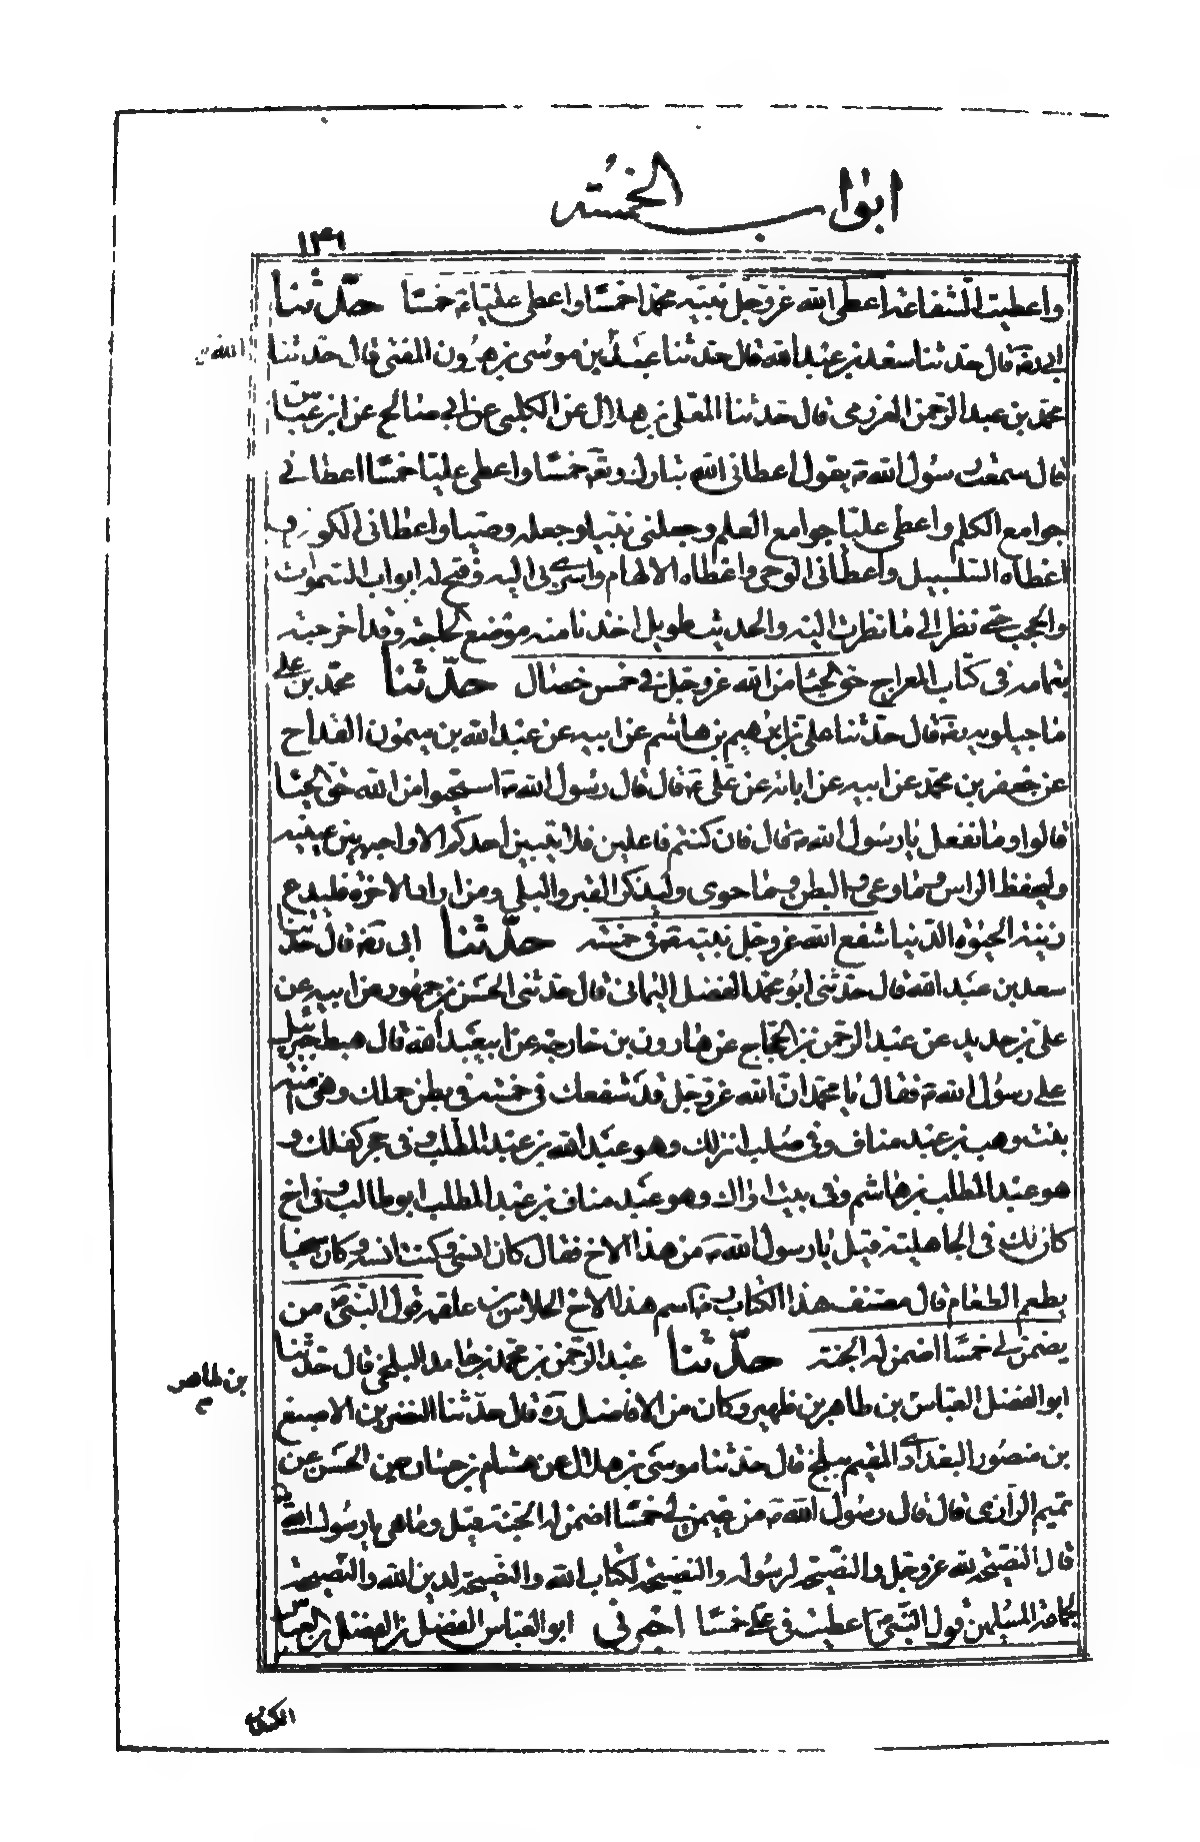 ابواب الخمسة
۱۴۶
واعطيت الشفاعة اعطى الله عزوجل نبيه محمدا خمسا واعطى عليا ع خمسا حدثنا
ابى ره قال حدثنا سعد بن عبدالله قال حدثنا عبد بن موسى بن هرون المفتى قال حدثنا
الله
محمد بن عبد الرحمن العرزمى قال حدثنا المعلى بن هلال عن الكلبى عن ابى صالح عن ابن عباس
قال سمعت رسول الله ص يقول اعطانى الله تبارك وتعه خمسا واعطى عليا خمسا اعطانى
جوامع الكلم واعطى عليا جوامع العلم وجعلنى نبيا وجعله وصيا واعطانى الكوثر و
اعطاه السلسبيل واعطانى الوحى واعطاه الالهام واسرى بى اليه وفتح له ابواب السموات
والحجب حتى نظر الى ما نظرت اليه والحديث طويل اخذنا منه موضع الحاجة وقد اخرجته
بتمامه فى كتاب المعراج حق الحيا من الله عزوجل فى خمس خصال حدثنا محمد بن على
ماجيلويه ره قال حدثنا على بن ابرهيم بن هاشم عن ابيه عن عبدالله بن ميمون القداح
عن جعفر بن محمد عن ابيه عن ابائه عن على ع قال قال رسول الله ص استحيوا من الله حق الحيا
قالوا وما نفعل يا رسول الله ص قال فان كنتم فاعلين فلا يبيتن احدكم الا واجله بين عينيه
وليحفظ الراس وما وعى والبطن وما حوى وليذكر القبر والبلى ومن اراد الاخرة فليدع
زينة الحيوة الدنيا شفع الله عزوجل نبيه ص فى خمسة حدثنا ابى ره قال حدثنا
سعد بن عبدالله قال حدثنى ابو محمد الفضل اليمانى قال حدثنى الحسن بن جمهور عن ابيه عن
على بن حديد عن عبد الرحمن بن الحجاج عن هارون بن خارجة عن ابيعبدالله قال هبط جبرئيل
على رسول الله ص فقال يا محمد ان الله عزوجل قد شفعك فى خمسة فى بطن حملك وهى امنة
بنت وهب بن عبد مناف وفى صلب انزلك وهو عبدالله بن عبد المطلب وفى حجر كفلك و
هو عبد المطلب بن هاشم وفى بيت اواك وهو عبد مناف بن عبد المطلب ابو طالب وفى اخ
كان لك فى الجاهلية قيل يا رسول الله ص من هذا الاخ فقال كان انسى وكنت انسه وكان سخيا
يطعم الطعام قال مصنف هذا الكتاب ره اسم هذا الاخ الجلاس بن علقمه قول النبى ص من
يضمن لى خمسا اضمن له الجنة حدثنا عبد الرحمن بن محمد بن حامد البلخى قال حدثنا
بن طاهر
ابو الفضل العباس بن طاهر بن ظهير وكان من الافاضل ره قال حدثنا النضر بن الاصبغ
بن منصور البغدادى المقيم ببلخ قال حدثنا موسى بن هلال عن هشام بن حسان عن الحسن عن
تميم الرازى قال قال رسول الله ص من يضمن لى خمسا اضمن له الجنة قيل وما هى يا رسول الله ص
قال النصيحة لله عزوجل والنصيحة لرسوله والنصيحة لكتاب الله والنصيحة لدين الله والنصيحة
لجماعة المسلمين قول النبى ص اعطيت فى على خمسا اخبرنى ابو العباس الفضل بن الفضل بن العباس
الكندى